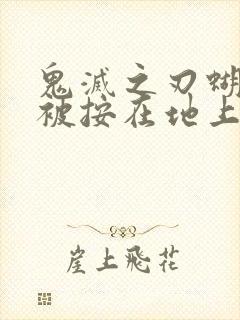 鬼滅之刃蝴
被按在地上
崖上飛花